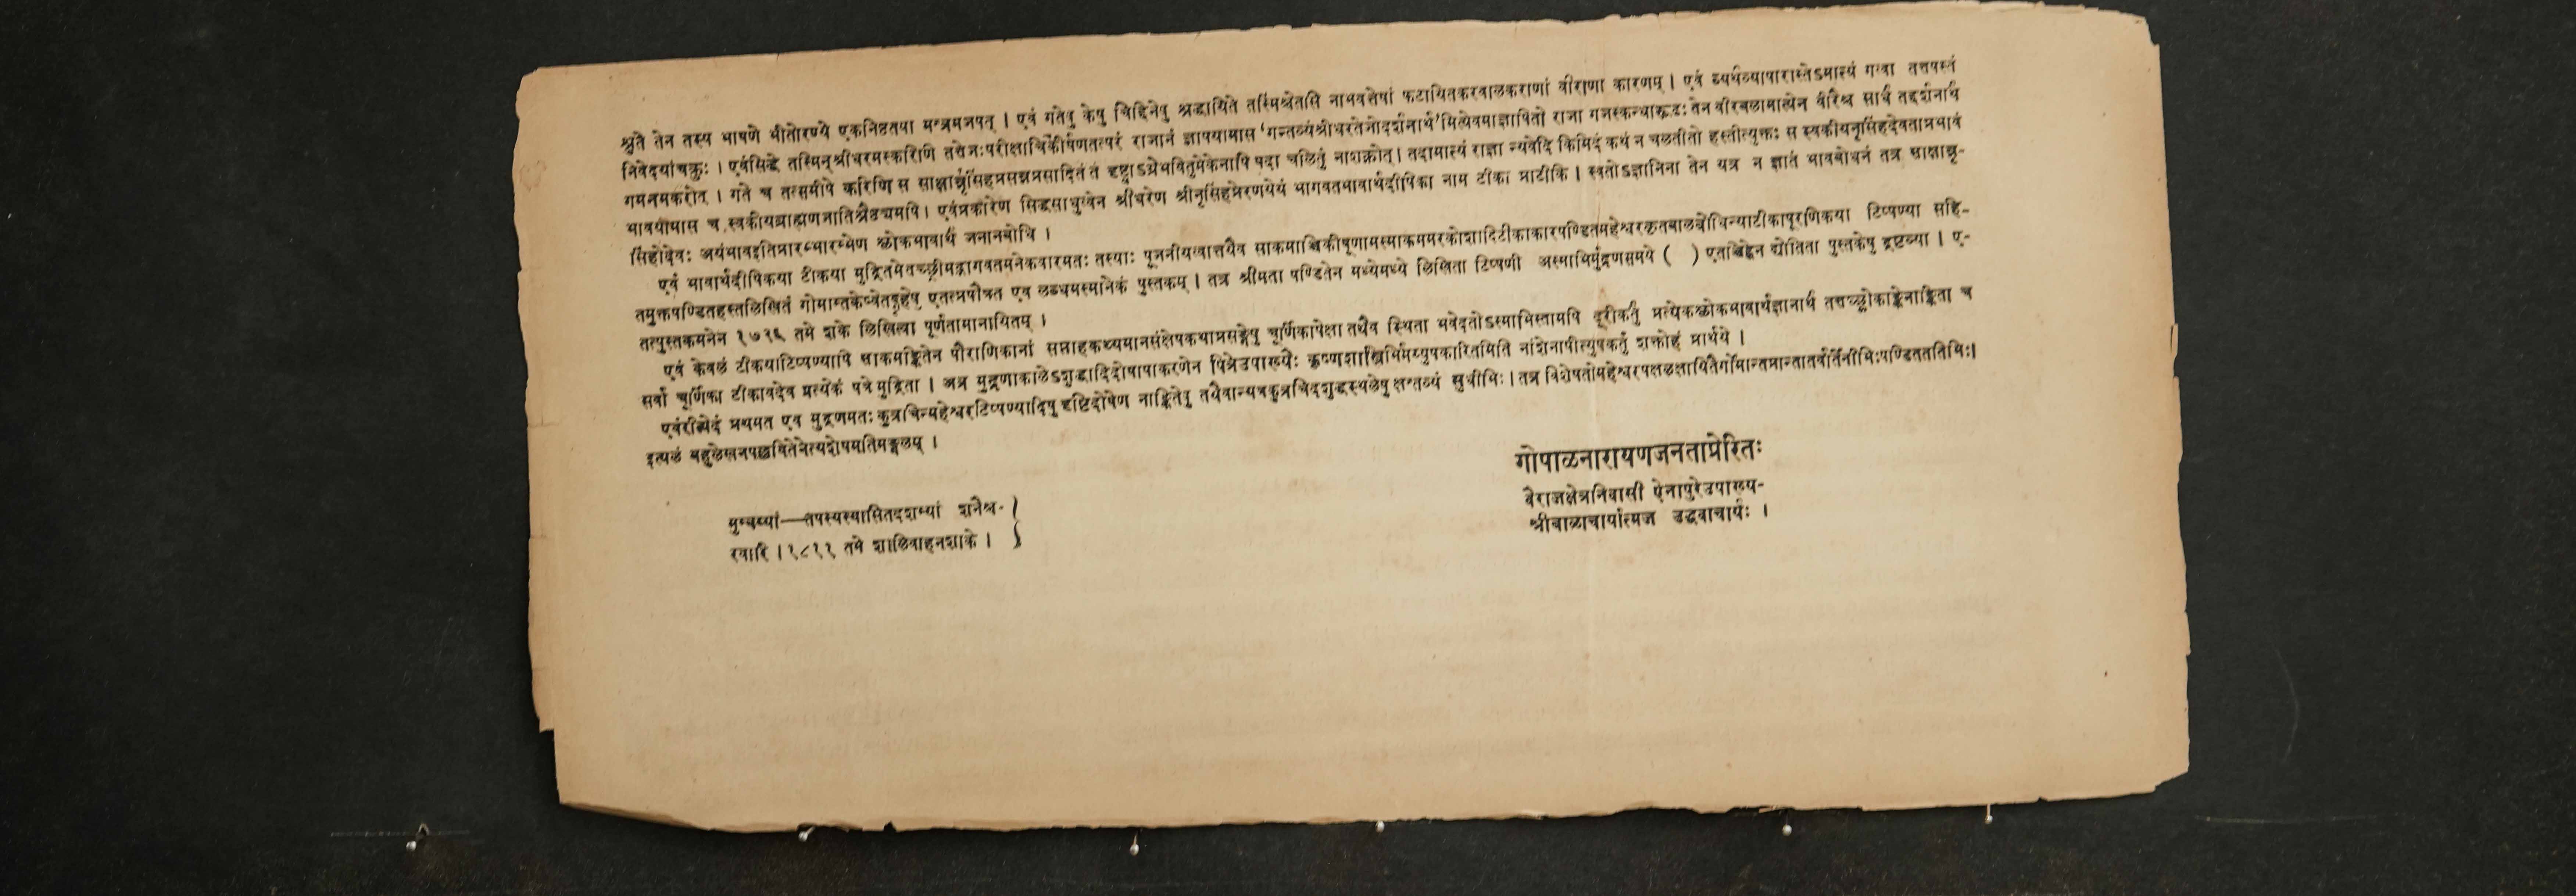 श्रुतै तेन तस्य भाषणे भीतोरण्ये एकनिष्ठतया मन्त्रमजपत् । एवं गतेषु केषु चिद्दिनेषु श्रद्धायिते तस्मिंश्चेतसि नाभवत्तेषां फटायितकरवालकराणां वीराणा कारणम् । एवं व्यर्थव्यापारास्तेऽमात्यं गत्वा तत्तपस्तं
निवेदयांचक्रुः । एवंसिद्धे तस्मिन्श्रीधरमस्करिणि तत्तेजःपरीक्षाचिकीर्षणतत्परं राजानं ज्ञापयामास ‘गन्तव्यंश्रीधरतेजोदर्शनार्थ’मित्येवमाज्ञापितो राजा गजस्कन्धारूढः तेन वीरबलामात्येन वीरैश्च सार्धं तद्दर्शनार्थं
गमनमकरोत् । गते च तत्समीपे करिणि स साक्षान्नृसिंहप्रसन्नप्रसादितं तं दृष्ट्वाऽग्रेभवितुमेकेनापि पदा चलितुं नाशक्नोत् । तदामात्यं राज्ञा न्यवेदि किमिदं कथं न चलतीतो हस्तीत्युक्तः स स्वकीयनृसिंहदेवताप्रभावं
भावयामास च स्वकीयब्राह्मणजातिश्रैष्ठ्यमपि । एवंप्रकारेण सिद्धसाधुत्वेन श्रीधरेण श्रीनृसिंहप्रेरणयेयं भागवतभावार्थदीपिका नाम टीका प्राटीकि । स्वतोऽज्ञानिना तेन यत्र न ज्ञातं भावबोधनं तत्र साक्षान्नृ-
सिंहोदेवः अयंभावइतिप्रारभ्भारम्भेण श्लोकभावार्थं जनानबोधि ।
एवं भावार्थदीपिकया टीकया मुद्रितमेवच्छ्रीमद्भागवतमनेकवारमतः तस्याः पूजनीयत्वात्तयैव साकमाश्चिकीषूणामस्माकममरकोशादिटीकाकारपण्डितमहेश्वरकृतबालबोधिन्याटीकापूरणिकया टिप्पण्या सहि-
तमुक्तपण्डितहस्तलिखितं गोमान्तकेष्वेतद्गृहेषु एतत्प्रपौत्रत एव लब्धमस्मानेकं पुस्तकम् । तत्र श्रीमता पण्डितेन मध्येमध्ये लिखिता टिप्पणी अस्माभिर्मुद्रणसमये ( ) एताच्चिह्नेन द्योतिता पुस्तकेषु द्रष्टव्या । ए-
तत्पुस्तकमनेन १७२६ तमे शके लिखित्वा पूर्णतामानायितम् ।
एवं केवलं टीकयाटिप्पण्यापि साकमङ्कितेन पौराणिकानां सप्ताहकथ्यमानसंक्षेपकथाप्रसङ्गेषु चूर्णिकापेक्षा तथैव स्थिता भवेदतोऽस्माभिस्तामपि दूरीकर्तुं प्रत्येकश्लोकभावार्थज्ञानार्थं तत्तच्छ्लोकाङ्केनाङ्किता च
सर्वा चूर्णिका टीकावदेव प्रत्येकं पत्रे मुद्रिता । अत्र मुद्रणाकालेऽशुद्धादिदोषापाकरणेन पित्रेउपाख्यैः कृष्णशास्त्रिभिर्मय्युपकारितमिति नांशेनापीत्युपकर्तुं शक्तोहं प्रार्थये ।
एवंरीत्येदं प्रथमत एव मुद्रणमतः कुत्रचिन्महेश्वरटिप्पण्यादिषु दृष्टिदोषेण नाङ्कितेषु तथैवान्यत्रकुत्रचिदशुद्धस्थलेषु क्षन्तव्यं सुधीभिः । तत्र विशेषतोमहेश्वरपक्षलक्षायितैर्गोमान्तप्रान्तातर्वार्तिनीभिःपण्डितततिभिः।
इत्यलं बहुलेखनपल्लवितेनेत्यशेषमतिमङ्गलम् ।
गोपाळनारायणजनताप्रेरितः
वैराजक्षेत्रनिवासी ऐनापुरेउपाख्य-
श्रीबाळाचार्यात्मज उद्धवाचार्यः ।
मुम्बय्यां—तपस्यस्यासितदशम्यां शनैश्च-
रवारे । १८११ तमे शालिवाहनशाके ।